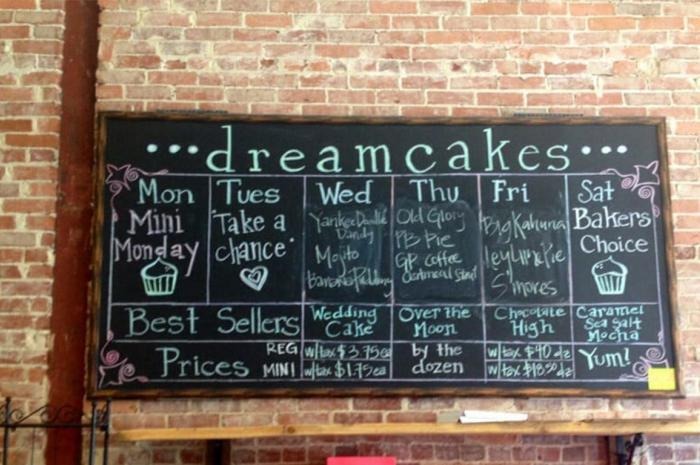 ...dreamcakes...
Mon Tues Wed Thu Fri Sat
Mini
Monday
"Take a
chance"
Yankee Doodle
Dandy
Mojito
Banana Pudding
Old Glory
PB Pie
GP Coffee
Oatmeal Stout
Big Kahuna
Key Lime Pie
S'mores
Bakers
Choice
Best Sellers
Wedding
Cake
Over the
Moon
Chocolate
High
Caramel
Sea Salt
Mocha
Prices
REG
MINI
w/tax $3.75 ea
w/tax $1.75 ea
by the
dozen
w/tax $40 dz
w/tax $18.50 dz
Yum!